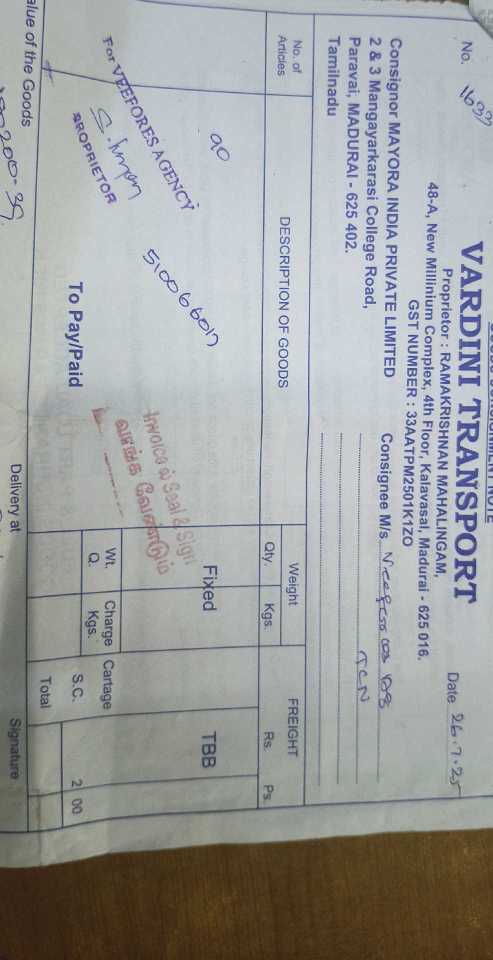 No. 1633
VARDINI TRANSPORT
Date 26.7.25
Proprietor : RAMAKRISHNAN MAHALINGAM,
48-A, New Millinium Complex, 4th Floor, Kalavasal, Madurai - 625 016.
GST NUMBER : 33AATPM2501K1ZO
Consignor MAYORA INDIA PRIVATE LIMITED
2 & 3 Mangayarkarasi College Road,
Paravai, MADURAI - 625 402.
Tamilnadu
Consignee M/s
TCN
No. of Articles
DESCRIPTION OF GOODS
Weight
Qty. Kgs.
FREIGHT
Rs. Ps.
90
510066017
Fixed
TBB
For VEEFORES AGENCY
PROPRIETOR
Invoice ல் Seal & Sign
வாங்க வேண்டும்
To Pay/Paid
Wt. Q.
Charge Kgs.
Cartage
S.C. 2 00
Total
alue of the Goods
Delivery at
Signature